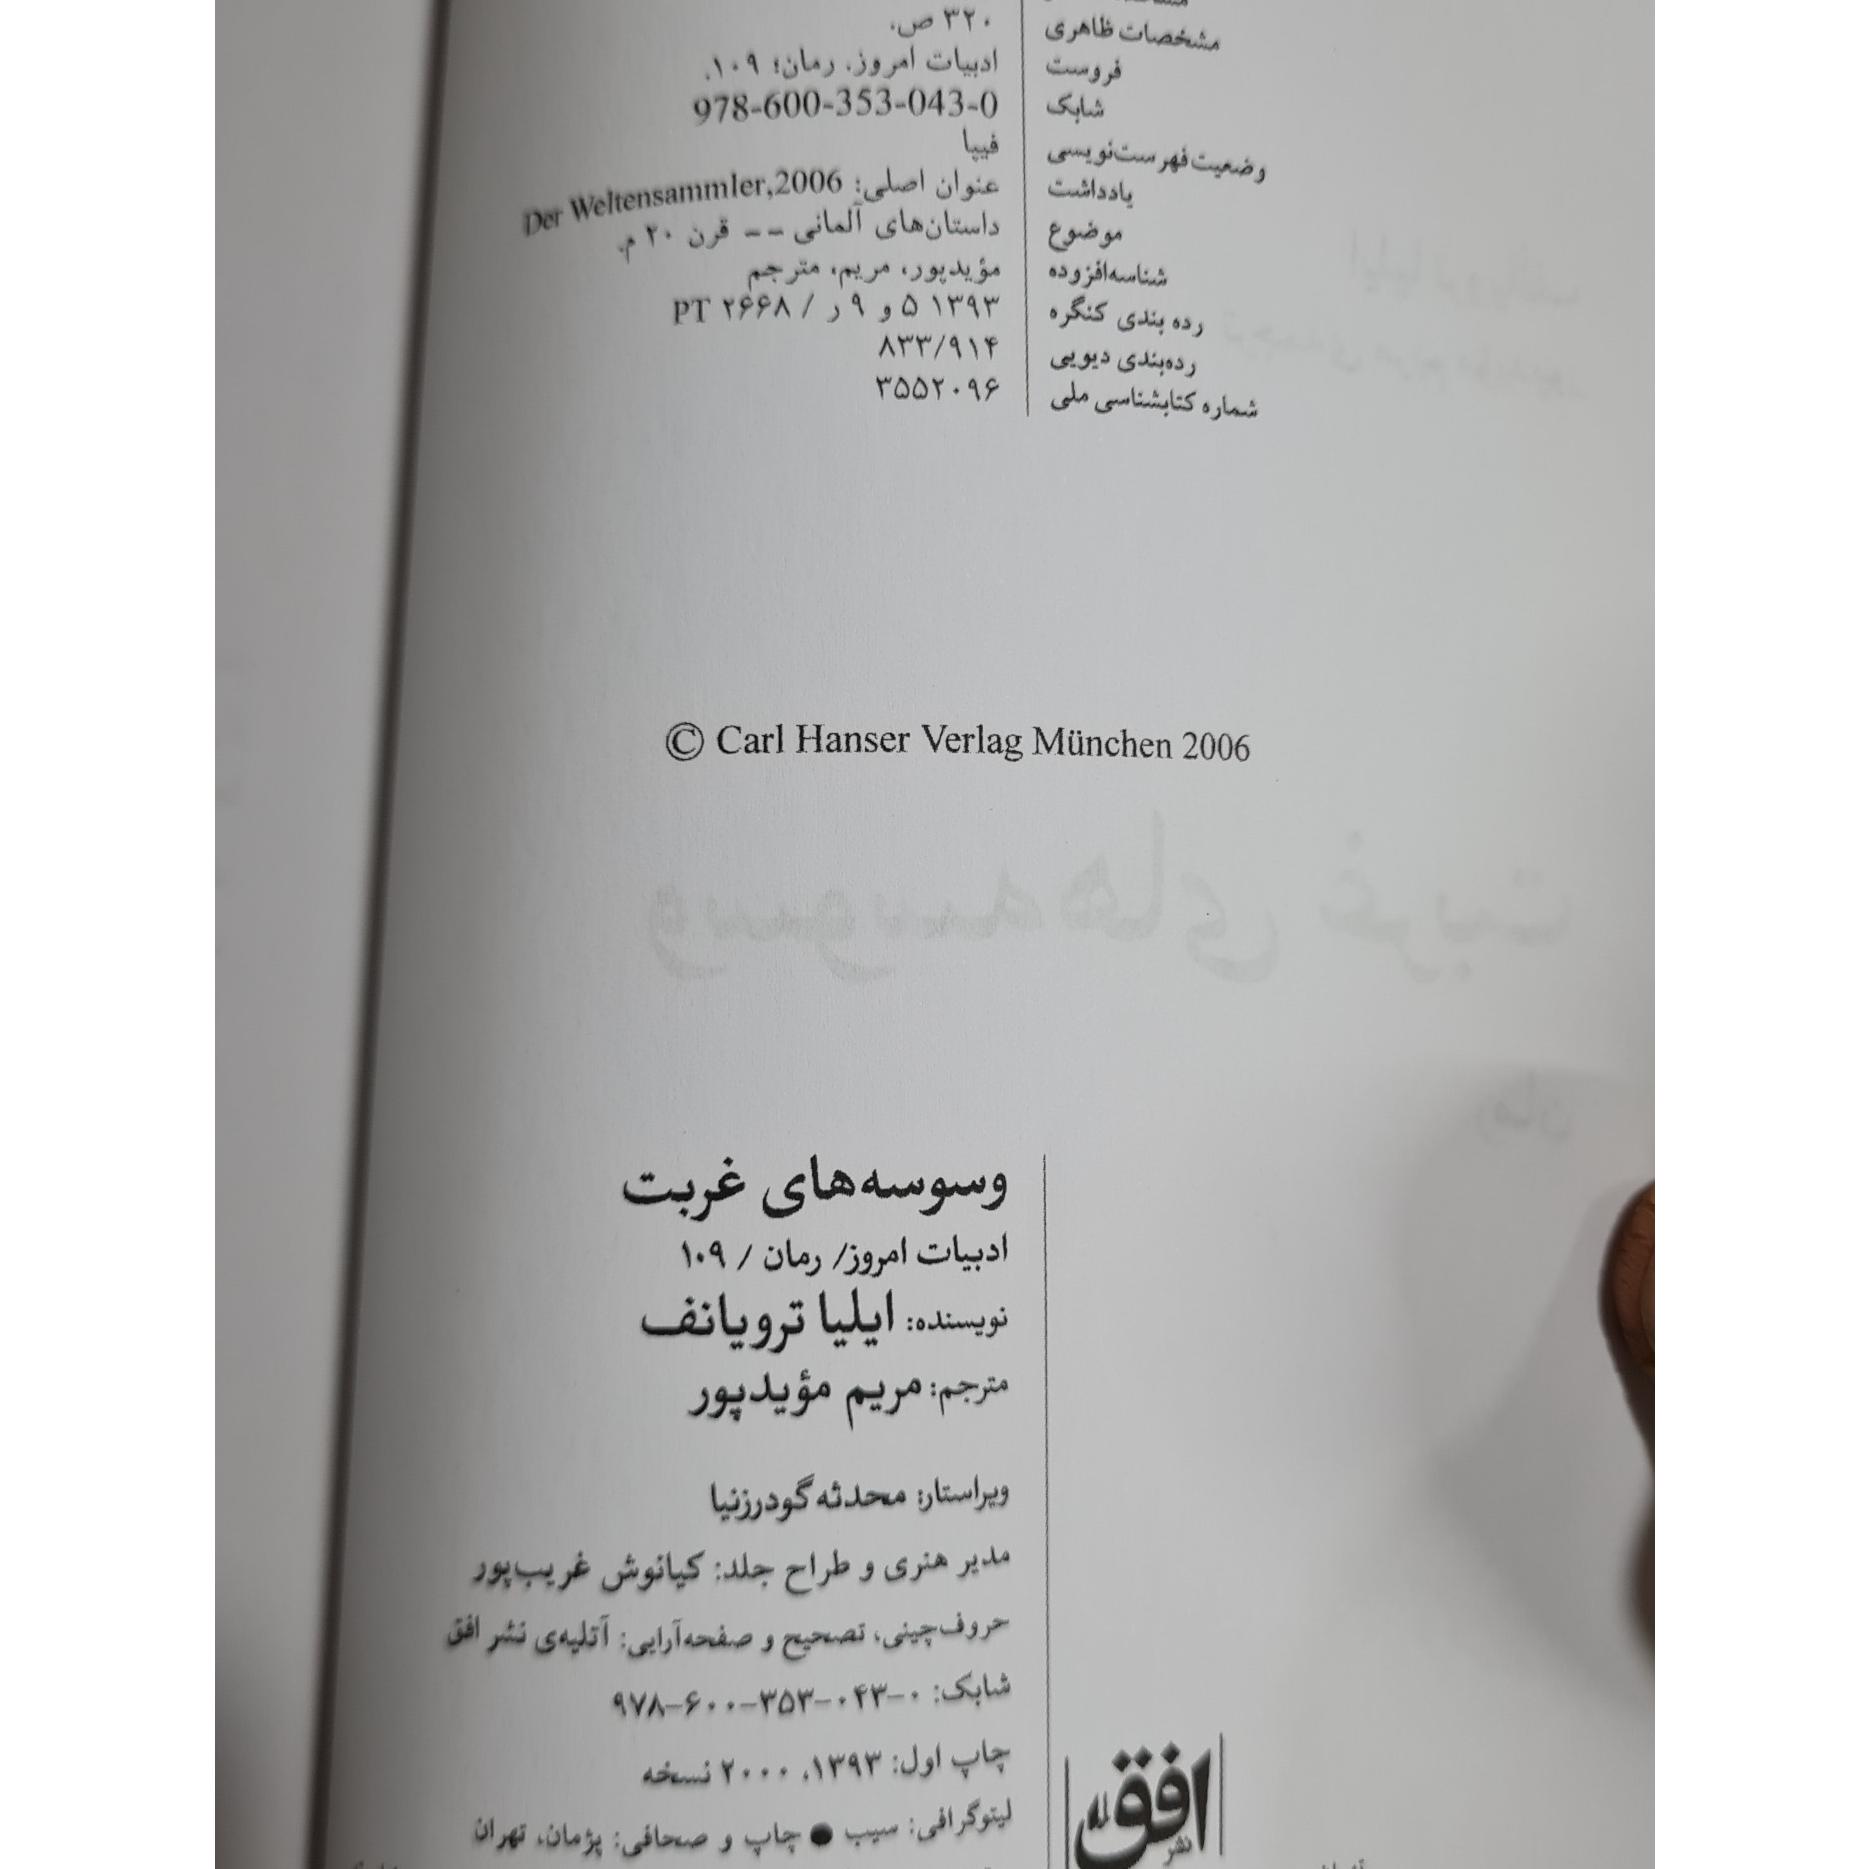 مشخصات ظاهری ۳۲۰ ص.
فروست ادبیات امروز، رمان؛ ۱۰۹.
شابک 978-600-353-043-0
وضعیت فهرست‌نویسی فیپا
یادداشت عنوان اصلی: Der Weltensammler,2006
موضوع داستان‌های آلمانی -- قرن ۲۰ م.
شناسه‌افزوده مؤیدپور، مریم، مترجم
رده بندی کنگره ۱۳۹۳ ۵ و ۹ ر / ۲۶۶۸ PT
رده‌بندی دیویی ۸۳۳/۹۱۴
شماره کتابشناسی ملی ۳۵۵۲۰۹۶
© Carl Hanser Verlag München 2006
وسوسه‌های غربت
ادبیات امروز/ رمان / ۱۰۹
نویسنده: ایلیا ترویانف
مترجم: مریم مؤیدپور
ویراستار: محدثه گودرزنیا
مدیر هنری و طراح جلد: کیانوش غریب‌پور
حروف‌چینی، تصحیح و صفحه‌آرایی: آتلیه‌ی نشر افق
شابک: ۰-۰۴۳-۳۵۳-۶۰۰-۹۷۸
چاپ اول: ۱۳۹۳، ۲۰۰۰ نسخه
لیتوگرافی: سیب ● چاپ و صحافی: پژمان، تهران
نشر افق